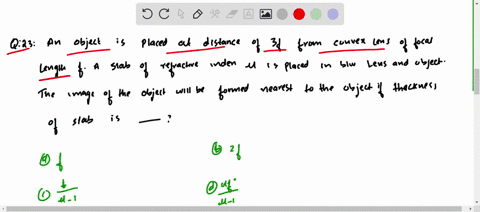 Q:23: An object is placed at distance of 3f from convex lens of focal
length f. A slab of refractive inden μ is placed in b/w lens and object.
The image of the object will be formed nearest to the object if thickness,
of slab is ___ ?
(a) f
(b) 2f
(c) f/μ-1
(d) μf/μ-1